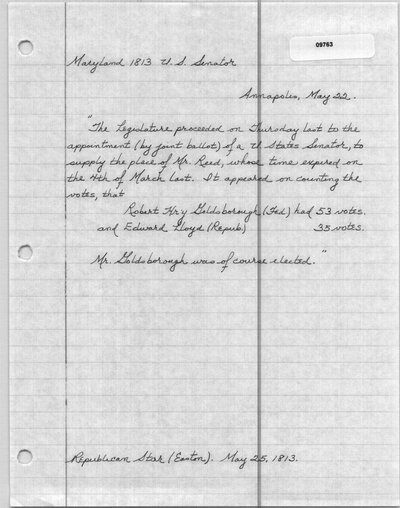 09763
Maryland 1813 U. S. Senator
Annapolis, May 22.
"The Legislature proceeded on Thursday last to the
appointment (by joint ballot) of a U States Senator, to
supply the place of Mr. Reed, whose time expired on
the 4th of March last. It appeared on counting the
votes, that
Robert Hry Goldsborough (Fed) had 53 votes.
and Edward Lloyd (Repub) 35 votes.
Mr. Goldsborough was of course elected."
Republican Star (Easton). May 25, 1813.